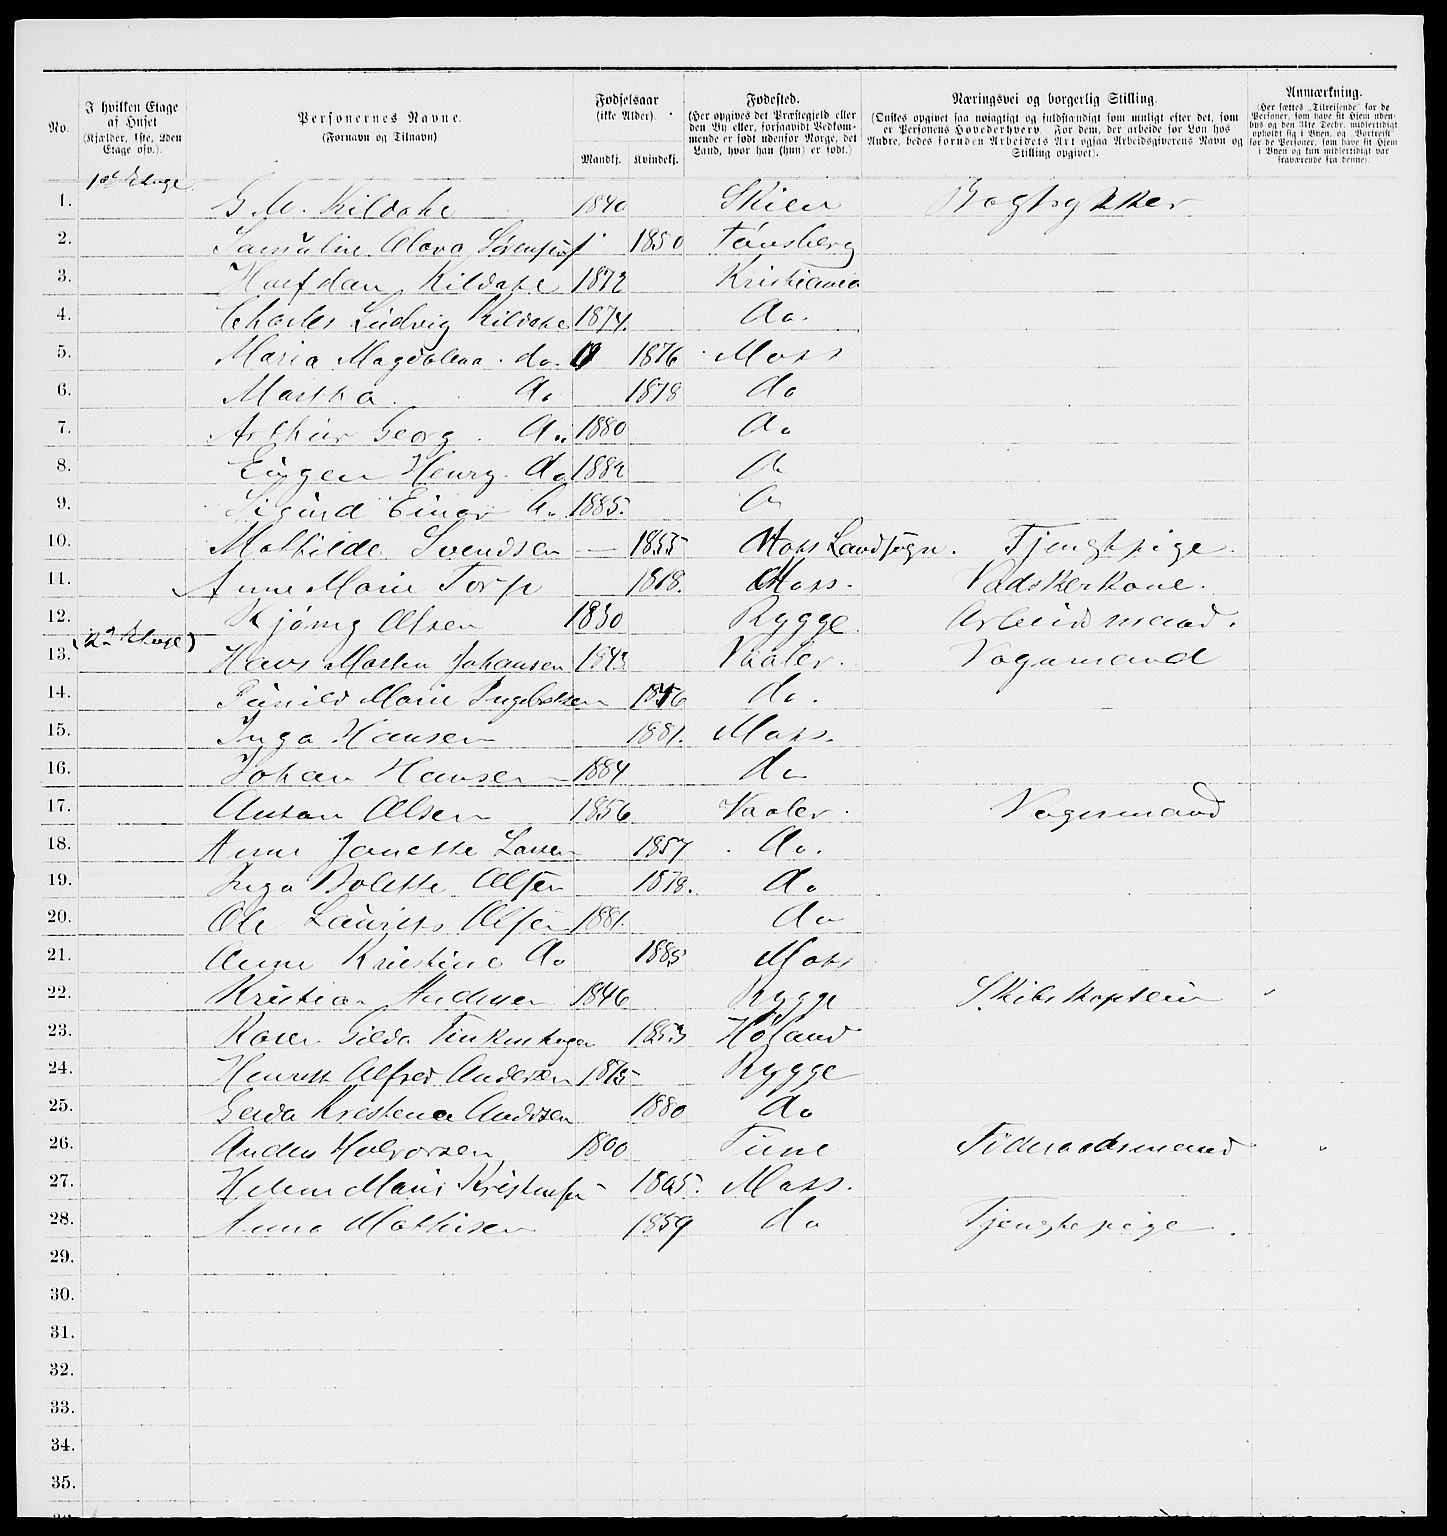 No.
I hvilken Etage af Huset (Kjælder, 1ste, 2den Etage osv.).
Personernes Navne. (Fornavn og Tilnavn)
Fødselsaar (ikke Alder). Mandkj. Kvindekj.
Fødested. (Her opgives det Præstegjeld eller den By eller, forsaavidt Vedkommende er født udenfor Norge, det Land, hvor han (hun) er født.)
Næringsvei og borgerlig Stilling. (Ønskes opgivet saa nøiagtigt og fuldstændigt som muligt efter det, som er Personens Hovederhverv. For dem, der arbeide for Løn hos Andre, bedes foruden Arbeidets Art ogsaa Arbeidsgiverens Navn og Stilling opgivet).
Anmærkning. (Her sættes „Tilreisende" for de Personer, som have sit Hjem udenbys og den 31te Decbr. midlertidigt opholdt sig i Byen, og „Bortreist" for de Personer, som have sit Hjem i Byen og kun midlertidigt var fraværende fra denne).
1. 1st Etage G. M. Kildahl 1840 Skien Bogtrykker
2. Samuline Olava 1850 Tønsberg
3. Halfdan Kildahl 1872 Kristiania
4. Charles Ludvig Kildahl 1874. do.
5. Maria Magdalena do. 1876 Moss
6. Martha do 1878 do
7. Arthur Georg do 1880 do
8. Eugen Henry do 1882 do
9. Sigurd Einar do 1885. do
10. Mathilde Svendsen — 1855 Moss Landsogn. Tjenstpige.
11. Anne Marie Torp 1818. Moss. Vadskerkone.
12. Olsen 1830 Rygge Arbeidsmand.
13. (2d Etage) Hans Martin Johansen 1843 Vaaler. Vognmand
14. Gunild Marie Ingebretsen 1846 do.
15. Inga Hansen 1881. Moss.
16. Johan Hansen 1884 do
17. Anton Olsen 1856 Vaaler. Vognmand
18. Anne Janette Larsen 1857 do.
19. Inga Bolette Olsen 1878. do
20. Ole Laurits Olsen 1881. do
21. Anne Kristine do 1885 Moss
22. Kristian Andersen 1846 Rygge Skibskaptein
23. Gilda Finkenhagen 1853 Høland
24. Henrik Alfred Andersen 1875 Rygge
25. Gerda Kristena Andersen 1880 do
26. Anders Halvorsen 1800 Tune Føderaadsmand
27. Helene Marie Kristensen 1805. Moss.
28. Anna Mathisen 1859 do Tjenstepige.
29.
30.
31.
32.
33.
34.
35.